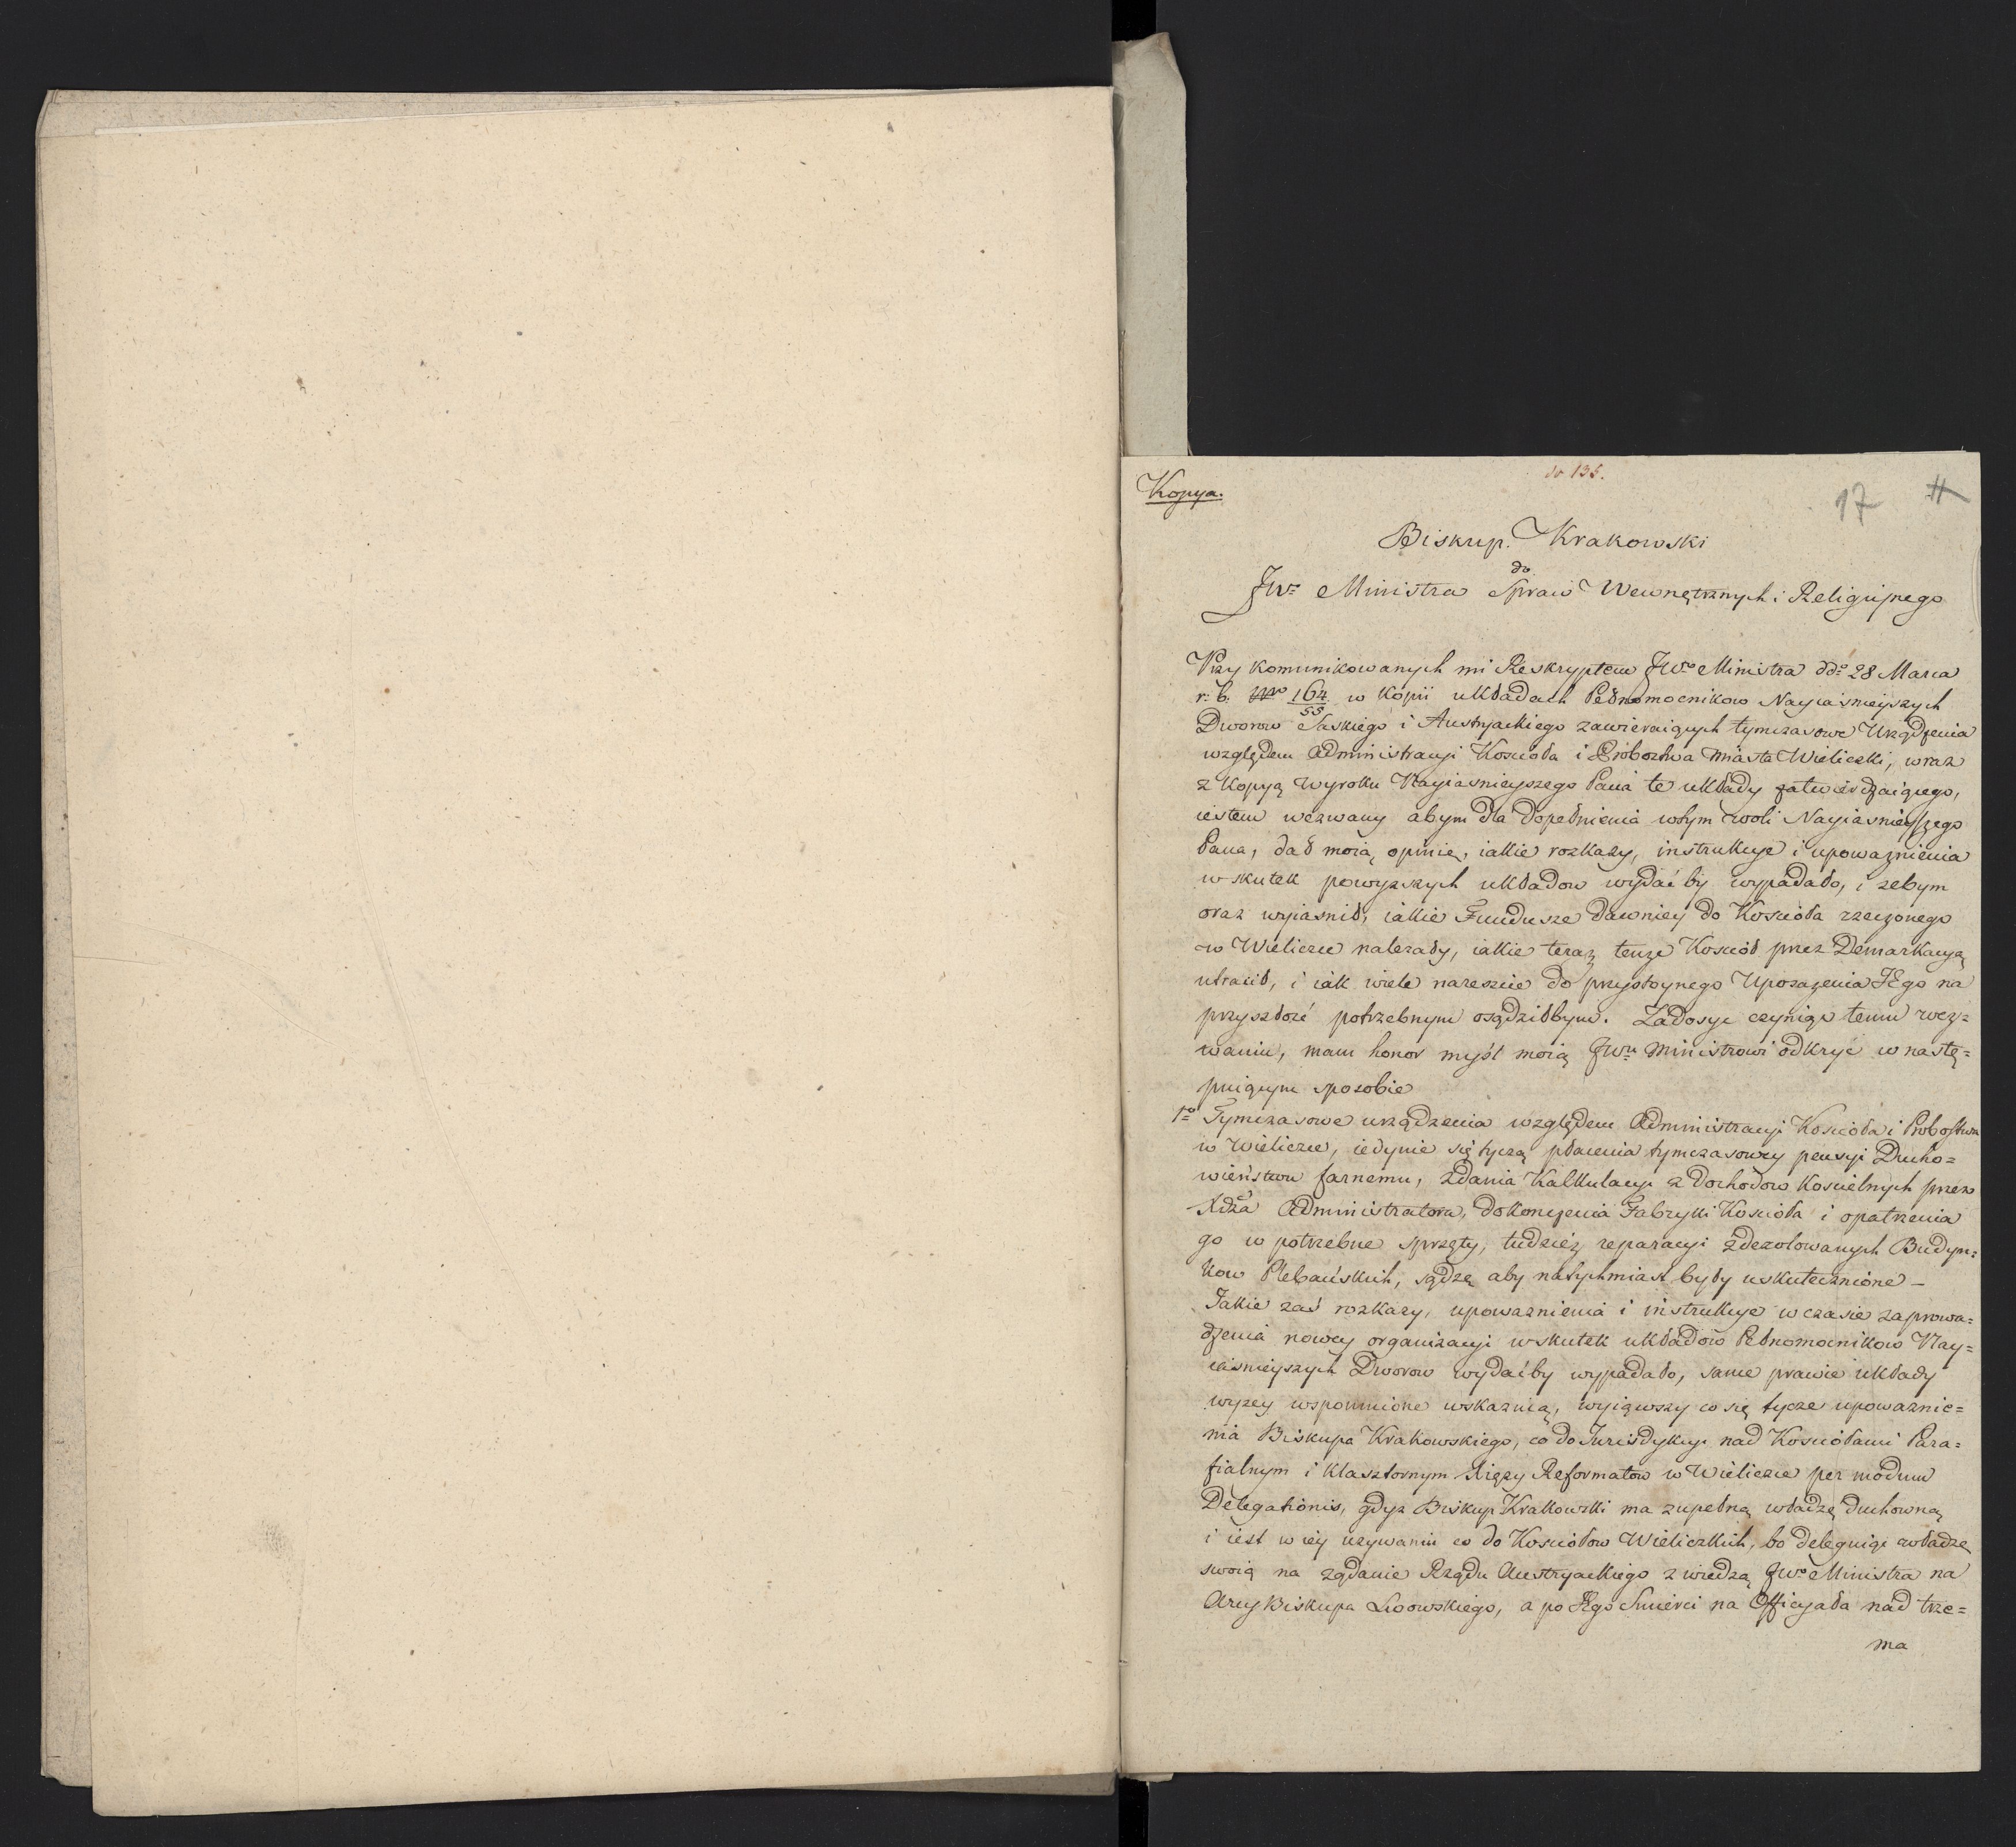 do 135.
Kopya.
17 11
Biskup Krakowski
do
JWo Ministra Spraw Wewnętrznych i Religijnego
Przy komunikowanych mi Reskryptem JWo Ministra ddo 28 Marca
r. b. Nro 164/55 w kopii układach Pełnomocnikow Nayiaśnieyszych
Dworow Saskiego i Austryackiego zawieraiących tymczasowe Urządzenia
względem Administracyi Kościoła i Probostwa miasta Wieliczki, wraz
z kopyą wyroku Nayiasnieyszego Pana te układy zatwierdzaiącego,
iestem wezwany abym dla dopełnienia wtym woli Nayiasnieyszego
Pana, dał moią opinię, iakie rozkazy, instrukcye i upoważnienia
w skutek powyższych układow wydać by wypadało, i żebym
oraz wyiasnił, iakie Fundusze dawniey do Kościoła rzeczonego
w Wieliczce należały, iakie teraz tenże Kościół przez Demarkacyą
utracił, i iak wiele nareszcie do przystoynego Uposażenia JEgo na
przyszłość potrzebnym osądziłbym. Zadosyć czyniąc temu wez=
waniu, mam honor myśl moią JWu Ministrowi odkryć w nastę=
puiącym sposobie
1o Tymczasowe urządzenia względem Administracyi Kościoła i Probostwa
w Wieliczce, iedynie się tyczą płacenia tymczasowey pensyi Ducho=
wieństwu farnemu, zdania Kalkulacyi z Dochodow Kościelnych przez
Xdza Administratora, dokończenia Fabryki Kościoła i opatrzenia
go w potrzebne sprzęty, tudzież reparacyi zdezolowanych Budyn=
kow Plebańskich, sądzę aby natychmiast były uskutecznione –
Jakie zaś rozkazy, upoważnienia i instrukcye w czasie zaprowa=
dzenia nowey organizacyi w skutek układow Pełnomocnikow Nay=
iaśnieyszych Dworow wydaćby wypadało, same prawie układy
wyżey wspomnione wskaznią, wyiąwszy co się tycze upoważnie=
nia Biskupa Krakowskiego, co do Jurisdykcyi nad Kościołami Para=
fialnym i Klasztornym Xięży Reformatow w Wieliczce per modum
Delegationis, gdyż Biskup Krakowski ma zupełną władzę duchowną
i iest w iey używaniu co do Kościołow Wielickich, bo deleguiąc władzę
swoią na żądanie Rządu Austryackiego z wiedzą JWo Ministra na
Arcy Biskupa Lwowskiego, a po JEgo Smierci na Officyała nad trze=
ma